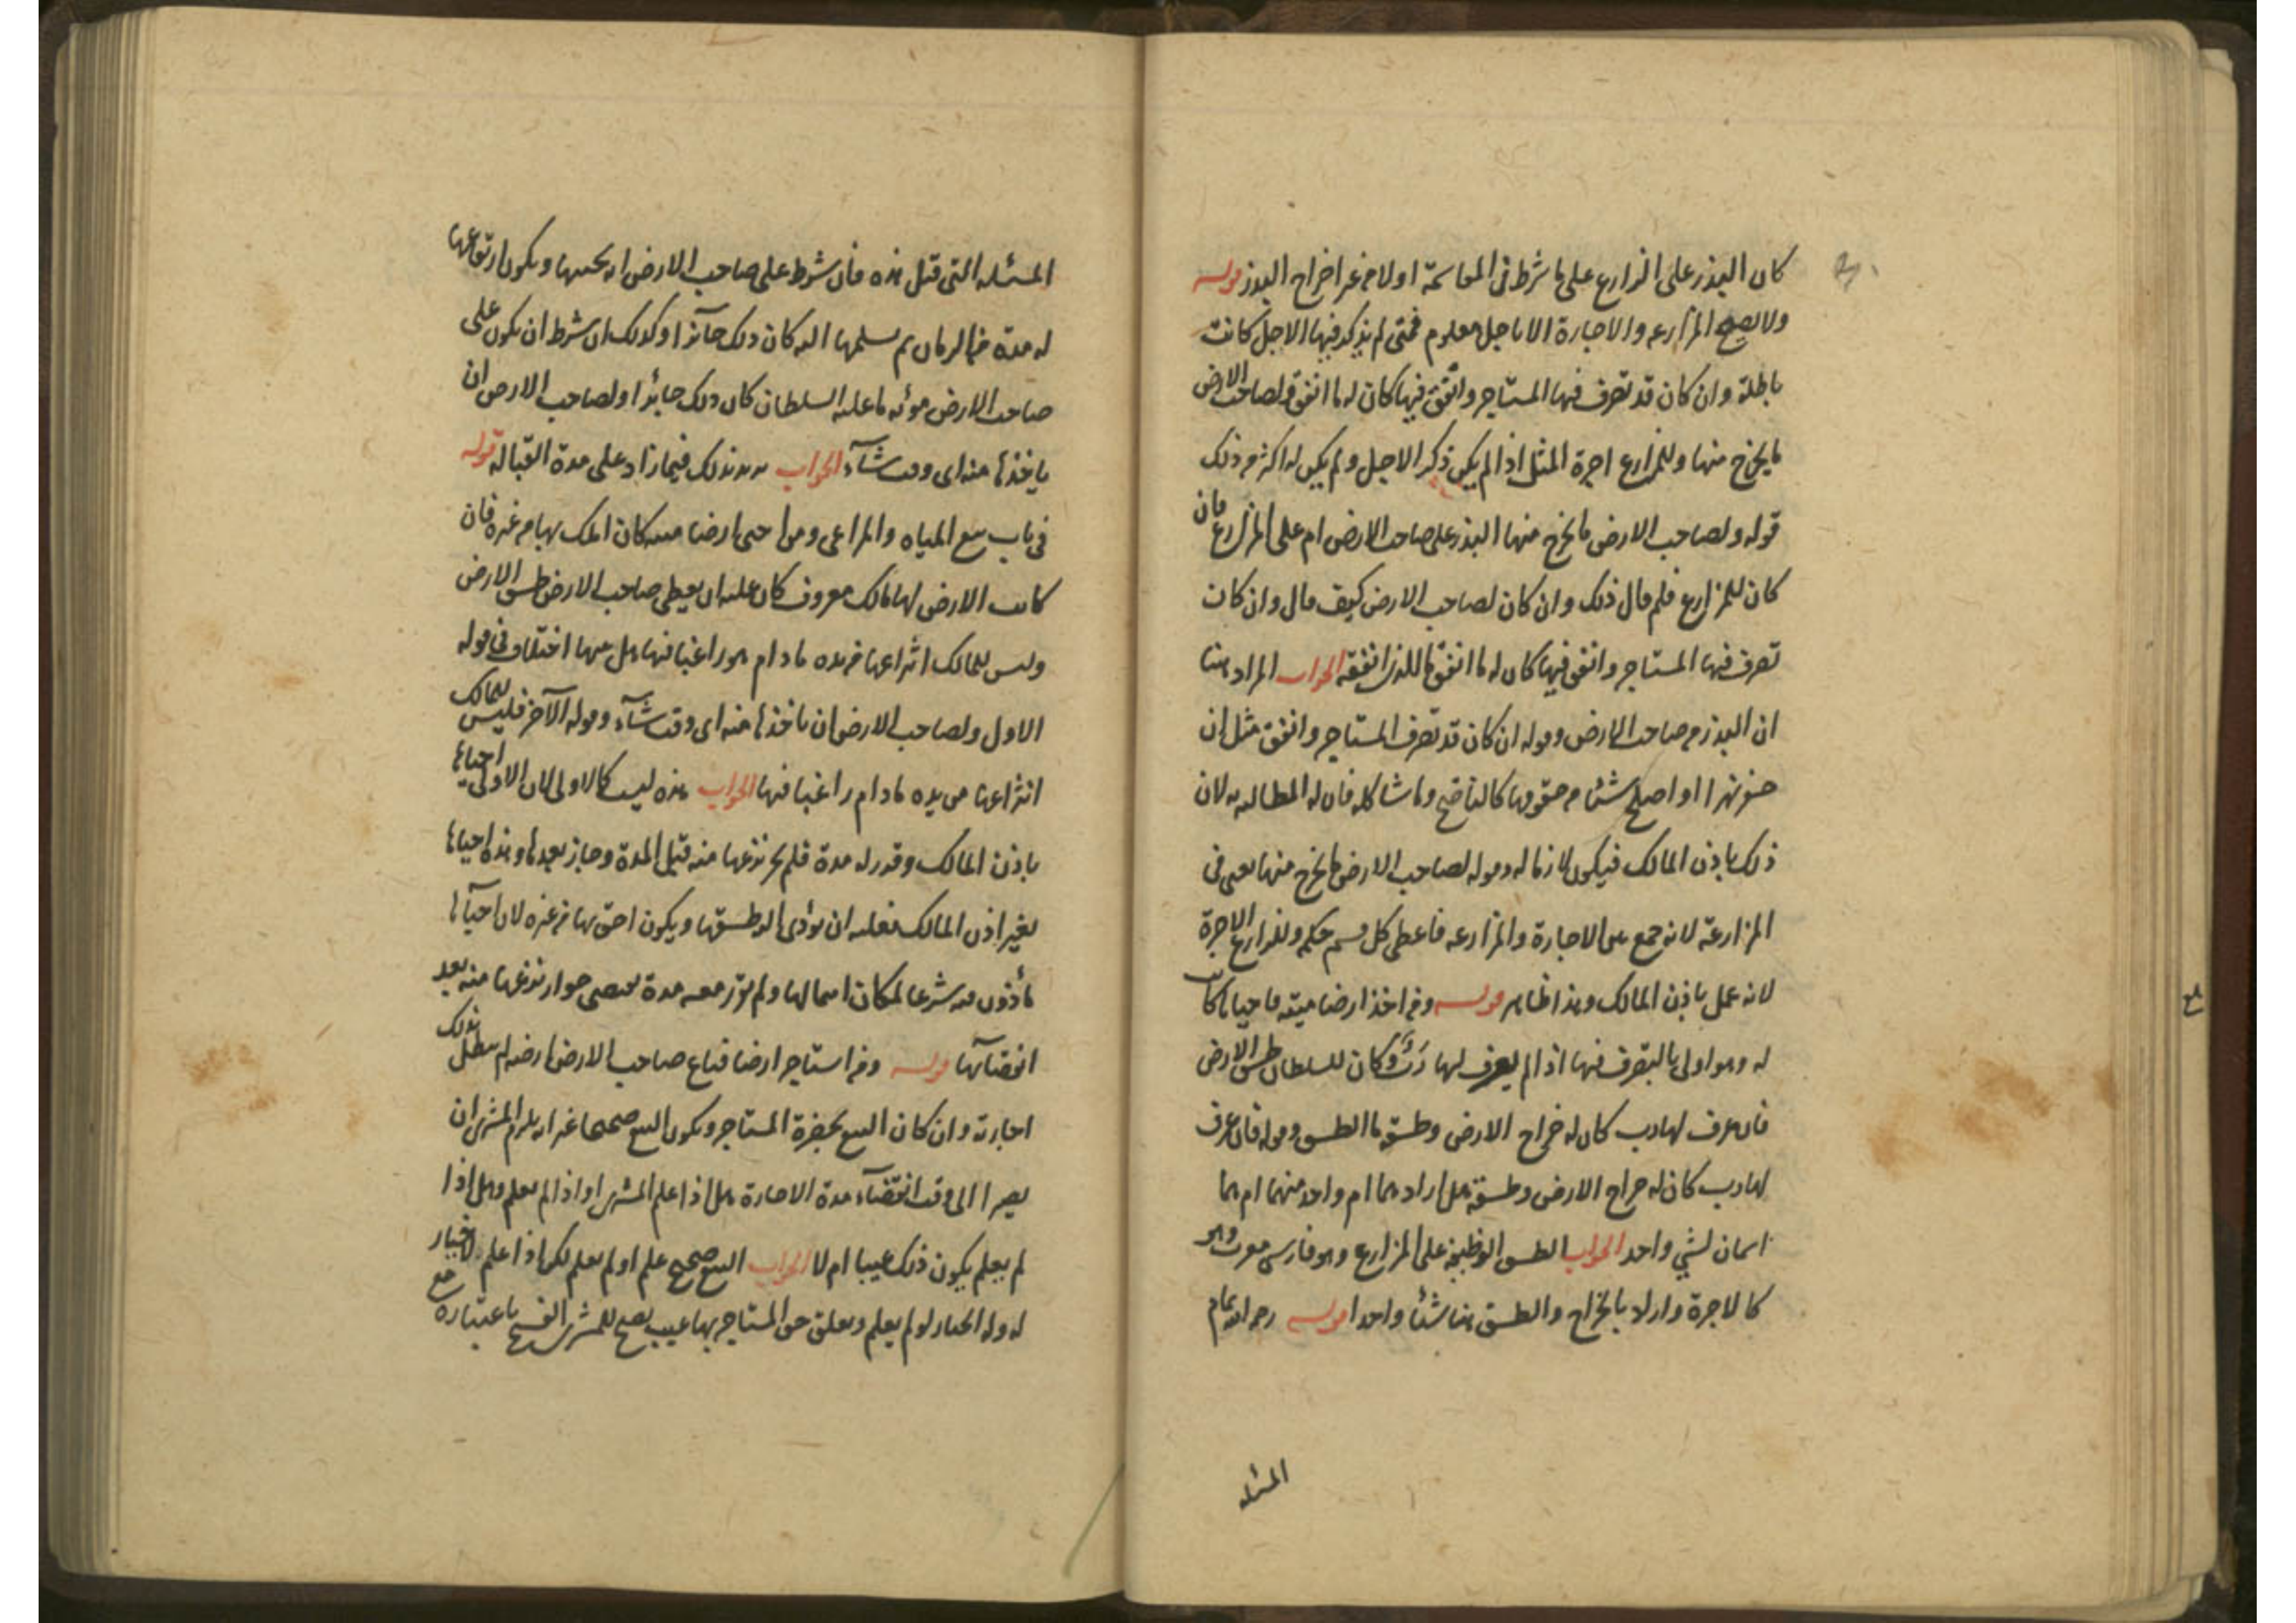 كان البذر على الزارع على ما شرط في المقاسمة اولا من غير اخراج البذر قوله
ولا يصح المزارعه والاجارة الا باجل معلوم فمتى لم يذكر فيها الاجل كانت
باطلة وان كان قد تصرف فيها المستاجر وانفق فيها كان له ما انفق ولصاحب الارض
ما يخرج منها وللمزارع اجرة المثل اذا لم يكن ذكر الاجل ولم يكن له اكثر من ذلك
قوله ولصاحب الارض ما يخرج منها البذر على صاحب الارض ام على المزارع فان
كان للمزارع فلم قال ذلك وان كان لصاحب الارض كيف قال وان كان
تصرف فيها المستاجر وانفق فيها كان له ما انفق ما للذى انفقه الجواب المراد هنا
ان البذر من صاحب الارض وقوله ان كان قد تصرف المستاجر وانفق مثل ان
حفر نهرا او اصلح شيئا من حقوقها كالناضح وما شاكله فان له المطالبه به لان
ذلك باذن المالك فيكون لازما له وقوله لصاحب الارض ما يخرج منها يعنى فى
المزارعة لانه جمع بين الاجارة والمزارعه فاعطى كل قسم حكمه وللمزارع الاجرة
لانه عمل باذن المالك وهذا ظاهر قوله ومن اخذ ارضا ميته فاحياها كانت
له وهو اولى بالتصرف فيها اذا لم يعرف لها رب وكان للسلطان طسق الارض
فان عرف لها رب كان له خراج الارض وطسقه ما الطسق وقوله فان عرف
لها رب كان له خراج الارض وطسقه هل اراد بهما ام واحد منهما ام هما
اسمان لشئ واحد الجواب الطسق الوظيفة على المزارع وهو فارسى معرب وهو
كالاجرة واراد بالخراج والطسق هنا شيئا واحدا قوله رحمه الله تمام
المسئله
المسئله التى قبل هذه فان شرط على صاحب الارض ان يحييها ويكون ارتفاعها
له مدة من الزمان ثم يسلمها اليه كان ذلك جائزا وكذلك ان شرط ان يكون على
صاحب الارض مؤنه ما عليه السلطان كان ذلك جائزا ولصاحب الارض ان
ياخذها منه اى وقت شآء الجواب يريد بذلك فيما زاد على مدة القباله قوله
فى باب بيع المياه والمراعى ومن احيى ارضا ميته كان املك بها من غيره فان
كانت الارض لها مالك معروف كان عليه ان يعطى صاحب الارض طسق الارض
وليس للمالك انتزاعها من يده ما دام هو راغبا فيها هل بينها اختلاف فى قوله
الاول ولصاحب الارض ان ياخذها منه اى وقت شآء وقوله الآخر فليس للمالك
انتزاعها من يده ما دام راغبا فيها الجواب هذه ليست كالاولى لان الاولى احياها
باذن المالك وقدر له مدة فلم يجز نزعها منه قبل المدة وجاز بعدها وهذا احياها
بغير اذن المالك فعليه ان يؤدى اليه طسقها ويكون احق بها من غيره لان احيآها
مأذون فيه شرعا لمكان اهمالها ولم تقرر معه مدة يقتضى جواز نزعها منه بعد
انقضآئها قوله ومن استاجر ارضا فباع صاحب الارض ارضه لم يبطل بذلك
اجارته وان كان البيع بحضرة المستاجر ويكون البيع صحيحا غير انه يلزم المشترى ان
يصبر الى وقت انقضآء مدة الاجارة هل اذا علم المشترى او اذا لم يعلم وهل اذا
لم يعلم يكون ذلك عيبا ام لا الجواب البيع صحيح علم او لم يعلم لكن اذا علم لا خيار
له وله الخيار لو لم يعلم وتعلق حق المستاجر بها عيب يصح للمشترى الفسخ باعتباره مع